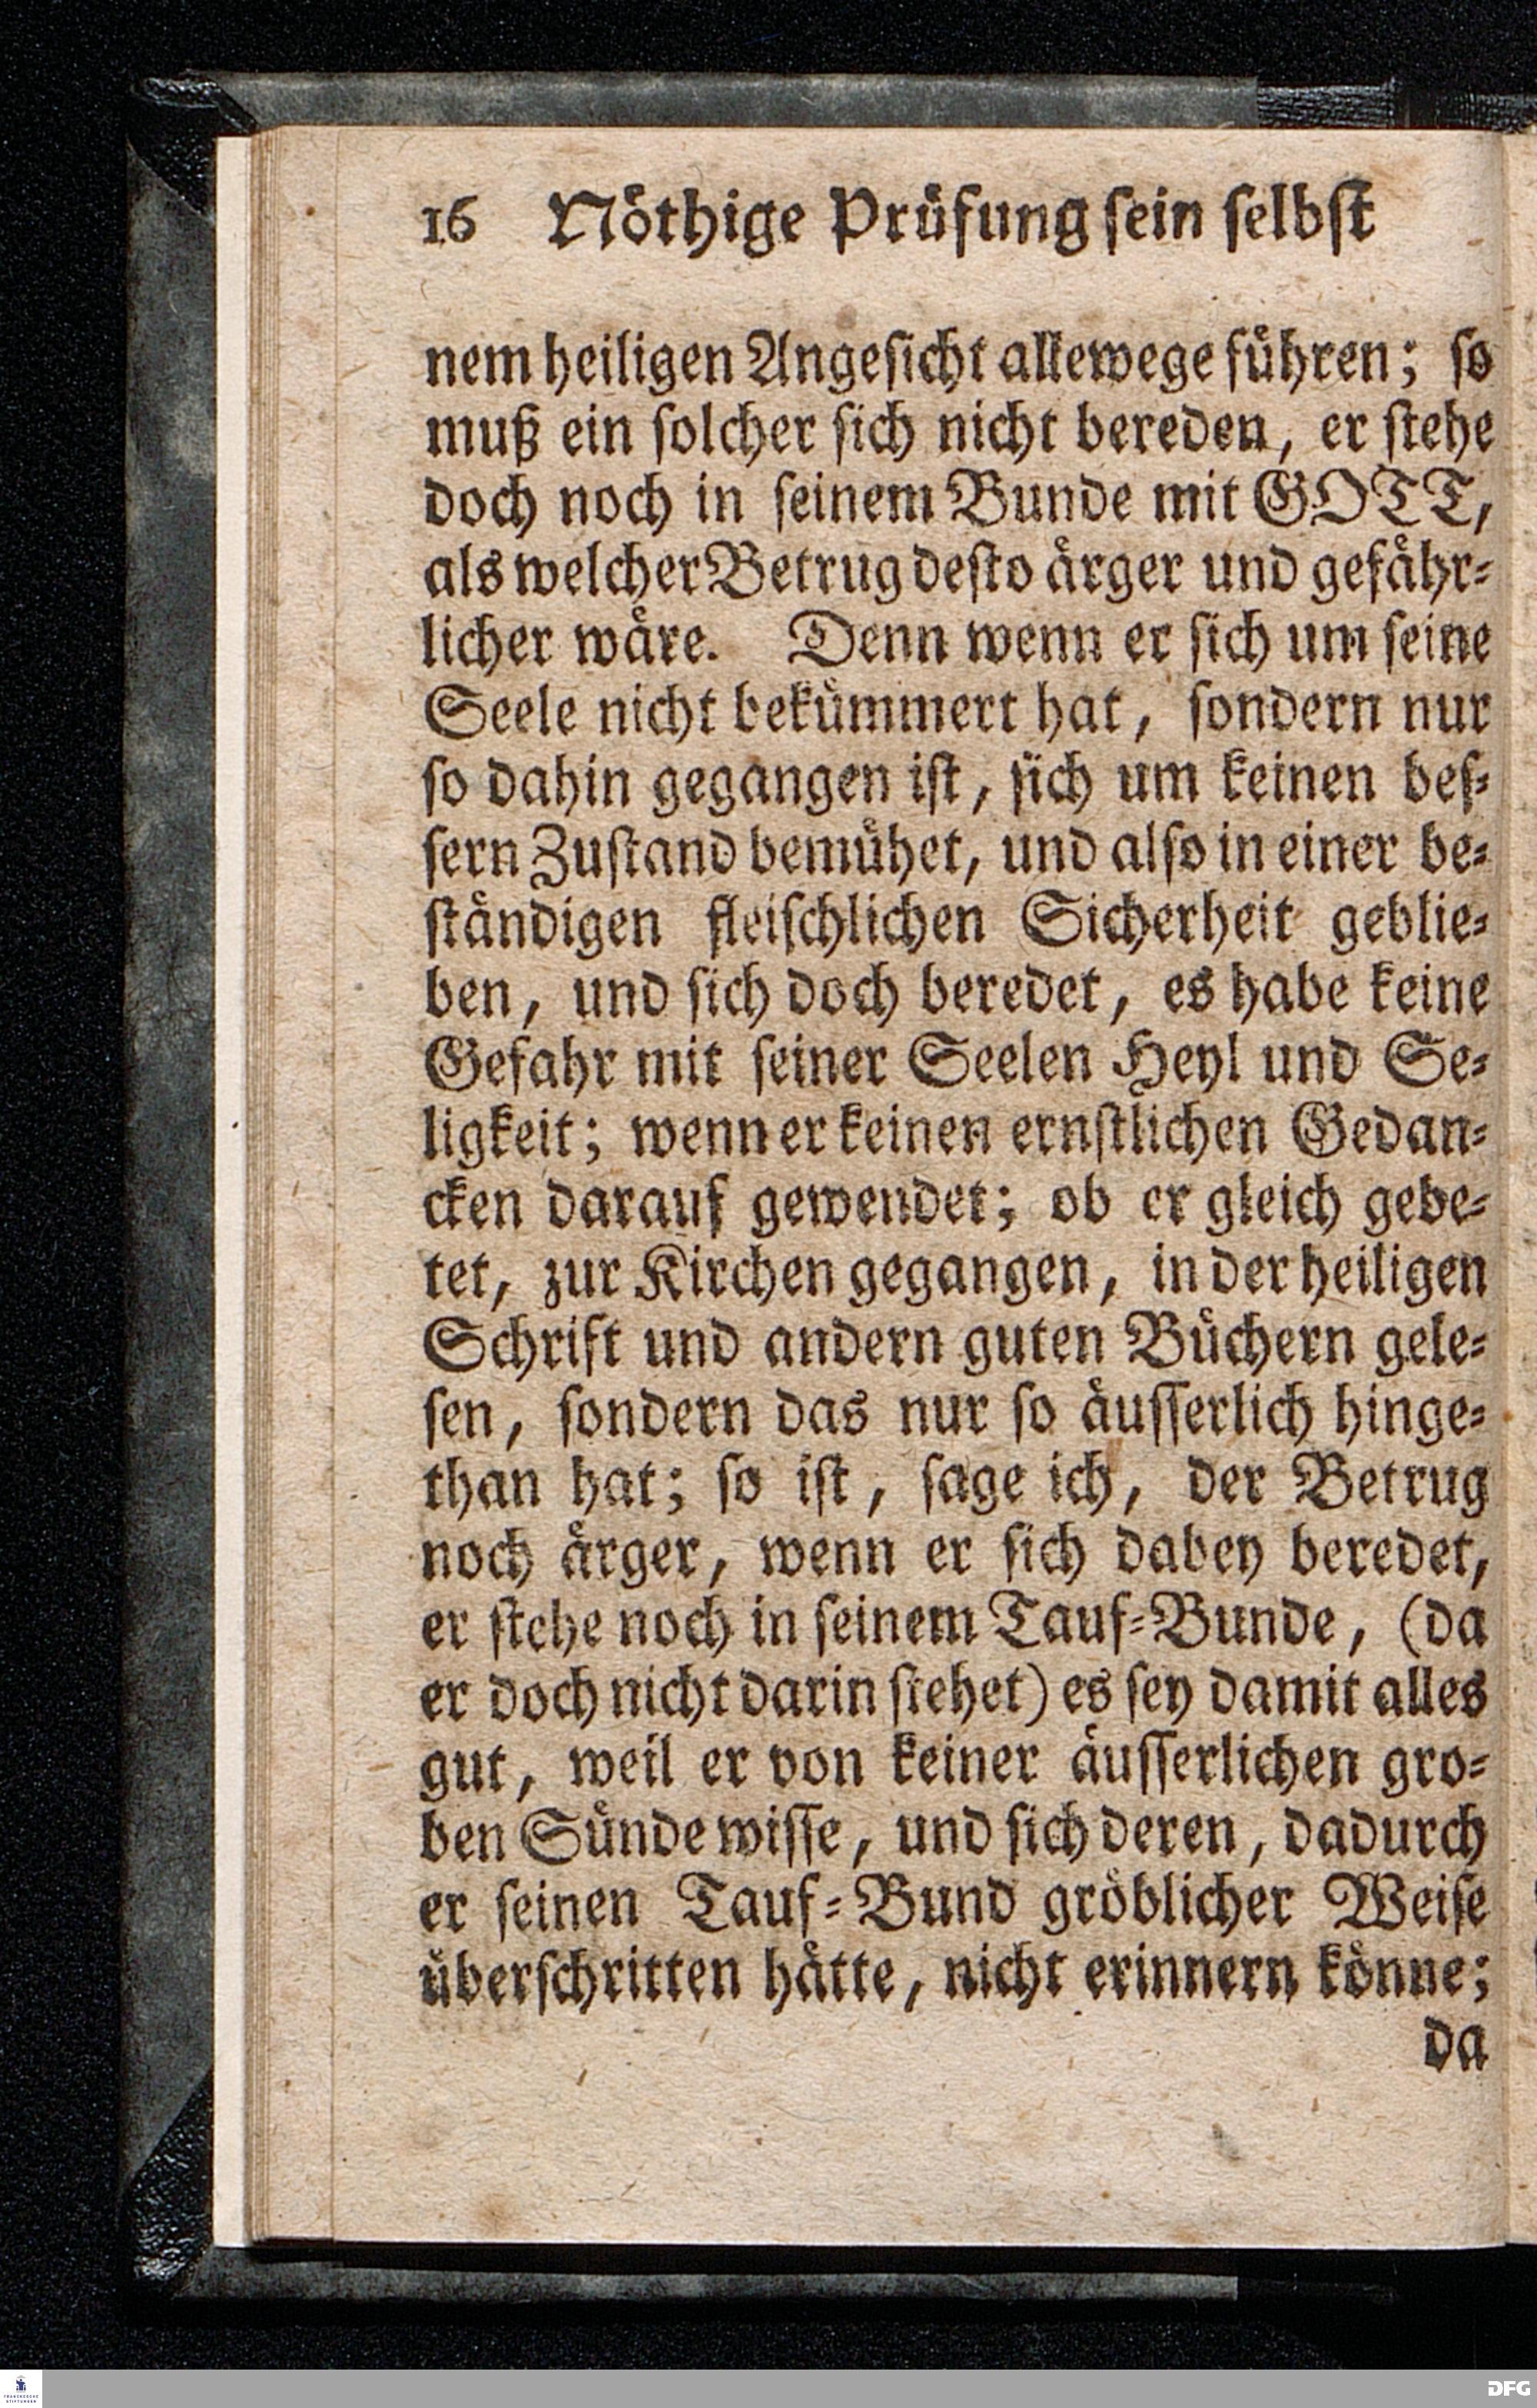 16 Nöthige Prüfung sein selbst
nem heiligen Angesicht allewege führen; so
muß ein solcher sich nicht bereden, er stehe
doch noch in seinem Bunde mit GOTT,
als welcher Betrug desto ärger und gefähr-
licher wäre. Denn wenn er sich um seine
Seele nicht bekümmert hat, sondern nur
so dahin gegangen ist, sich um keinen bes-
sern Zustand bemühet, und also in einer be-
ständigen fleischlichen Sicherheit geblie-
ben, und sich doch beredet, es habe keine
Gefahr mit seiner Seelen Heyl und Se-
ligkeit; wenn er keinen ernstlichen Gedan-
cken darauf gewendet; ob er gleich gebe-
tet, zur Kirchen gegangen, in der heiligen
Schrift und andern guten Büchern gele-
sen, sondern das nur so äusserlich hinge-
than hat; so ist, sage ich, der Betrug
noch ärger, wenn er sich dabey beredet,
er stehe noch in seinem Tauf-Bunde, (da
er doch nicht darin stehet) es sey damit alles
gut, weil er von keiner äusserlichen gro-
ben Sünde wisse, und sich deren, dadurch
er seinen Tauf-Bund gröblicher Weise
überschritten hätte, nicht erinnern könne;
da
FRANCKESCHE
STIFTUNGEN
DFG